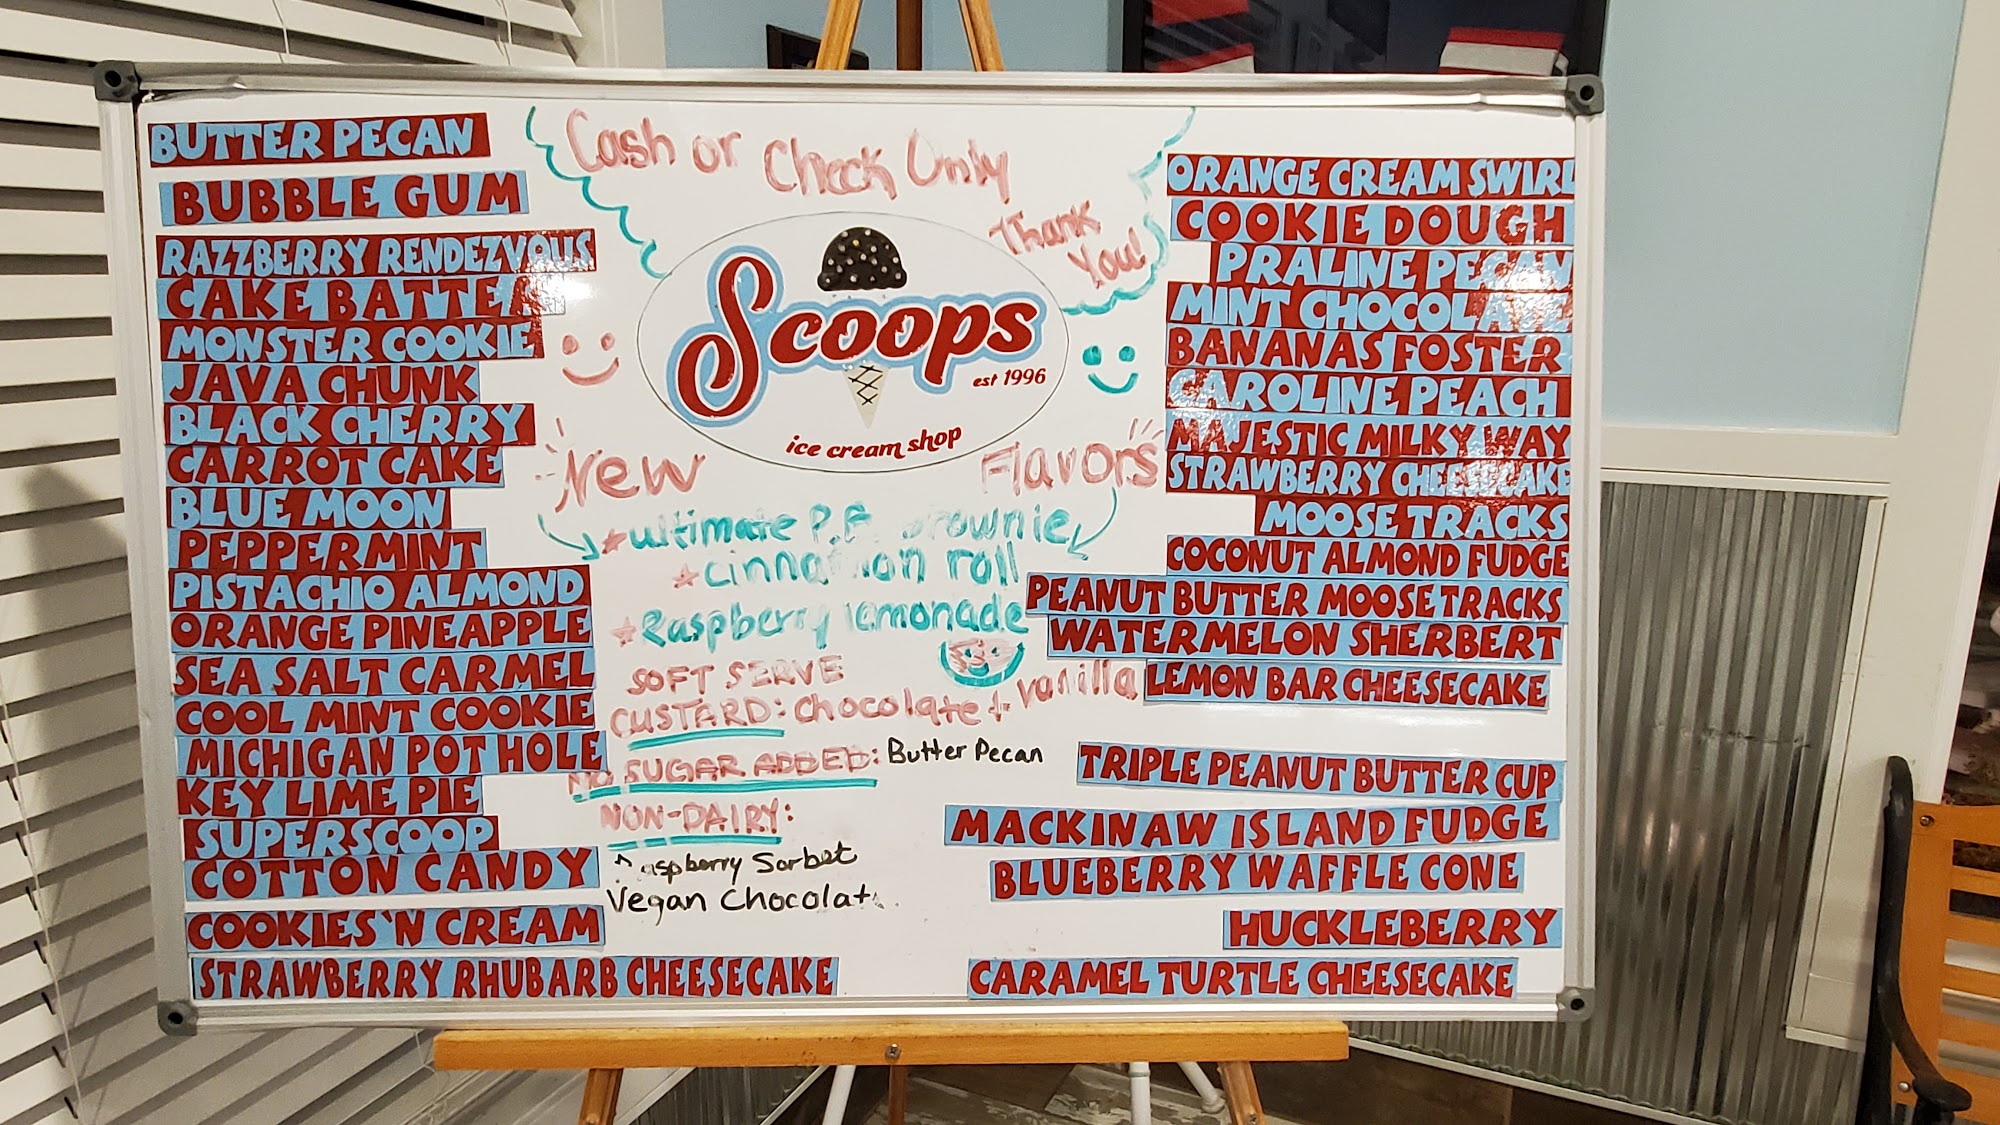 BUTTER PECAN
BUBBLE GUM
RAZZBERRY RENDEZVOUS
CAKE BATTER
MONSTER COOKIE
JAVA CHUNK
BLACK CHERRY
CARROT CAKE
BLUE MOON
PEPPERMINT
PISTACHIO ALMOND
ORANGE PINEAPPLE
SEA SALT CARMEL
COOL MINT COOKIE
MICHIGAN POT HOLE
KEY LIME PIE
SUPERSCOOP
COTTON CANDY
COOKIES 'N CREAM
STRAWBERRY RHUBARB CHEESECAKE
Cash or Check Only
Thank
You!
Scoops
est 1996
ice cream shop
New Flavors
*ultimate P.B. brownie
*cinnamon roll
*Raspberry lemonade
SOFT SERVE
CUSTARD: chocolate + vanilla
NO SUGAR ADDED: Butter Pecan
NON-DAIRY:
Raspberry Sorbet
Vegan Chocolat
ORANGE CREAM SWIRL
COOKIE DOUGH
PRALINE PECAN
MINT CHOCOLATE
BANANAS FOSTER
CAROLINE PEACH
MAJESTIC MILKY WAY
STRAWBERRY CHEESECAKE
MOOSE TRACKS
COCONUT ALMOND FUDGE
PEANUT BUTTER MOOSE TRACKS
WATERMELON SHERBERT
LEMON BAR CHEESECAKE
TRIPLE PEANUT BUTTER CUP
MACKINAW ISLAND FUDGE
BLUEBERRY WAFFLE CONE
HUCKLEBERRY
CARAMEL TURTLE CHEESECAKE